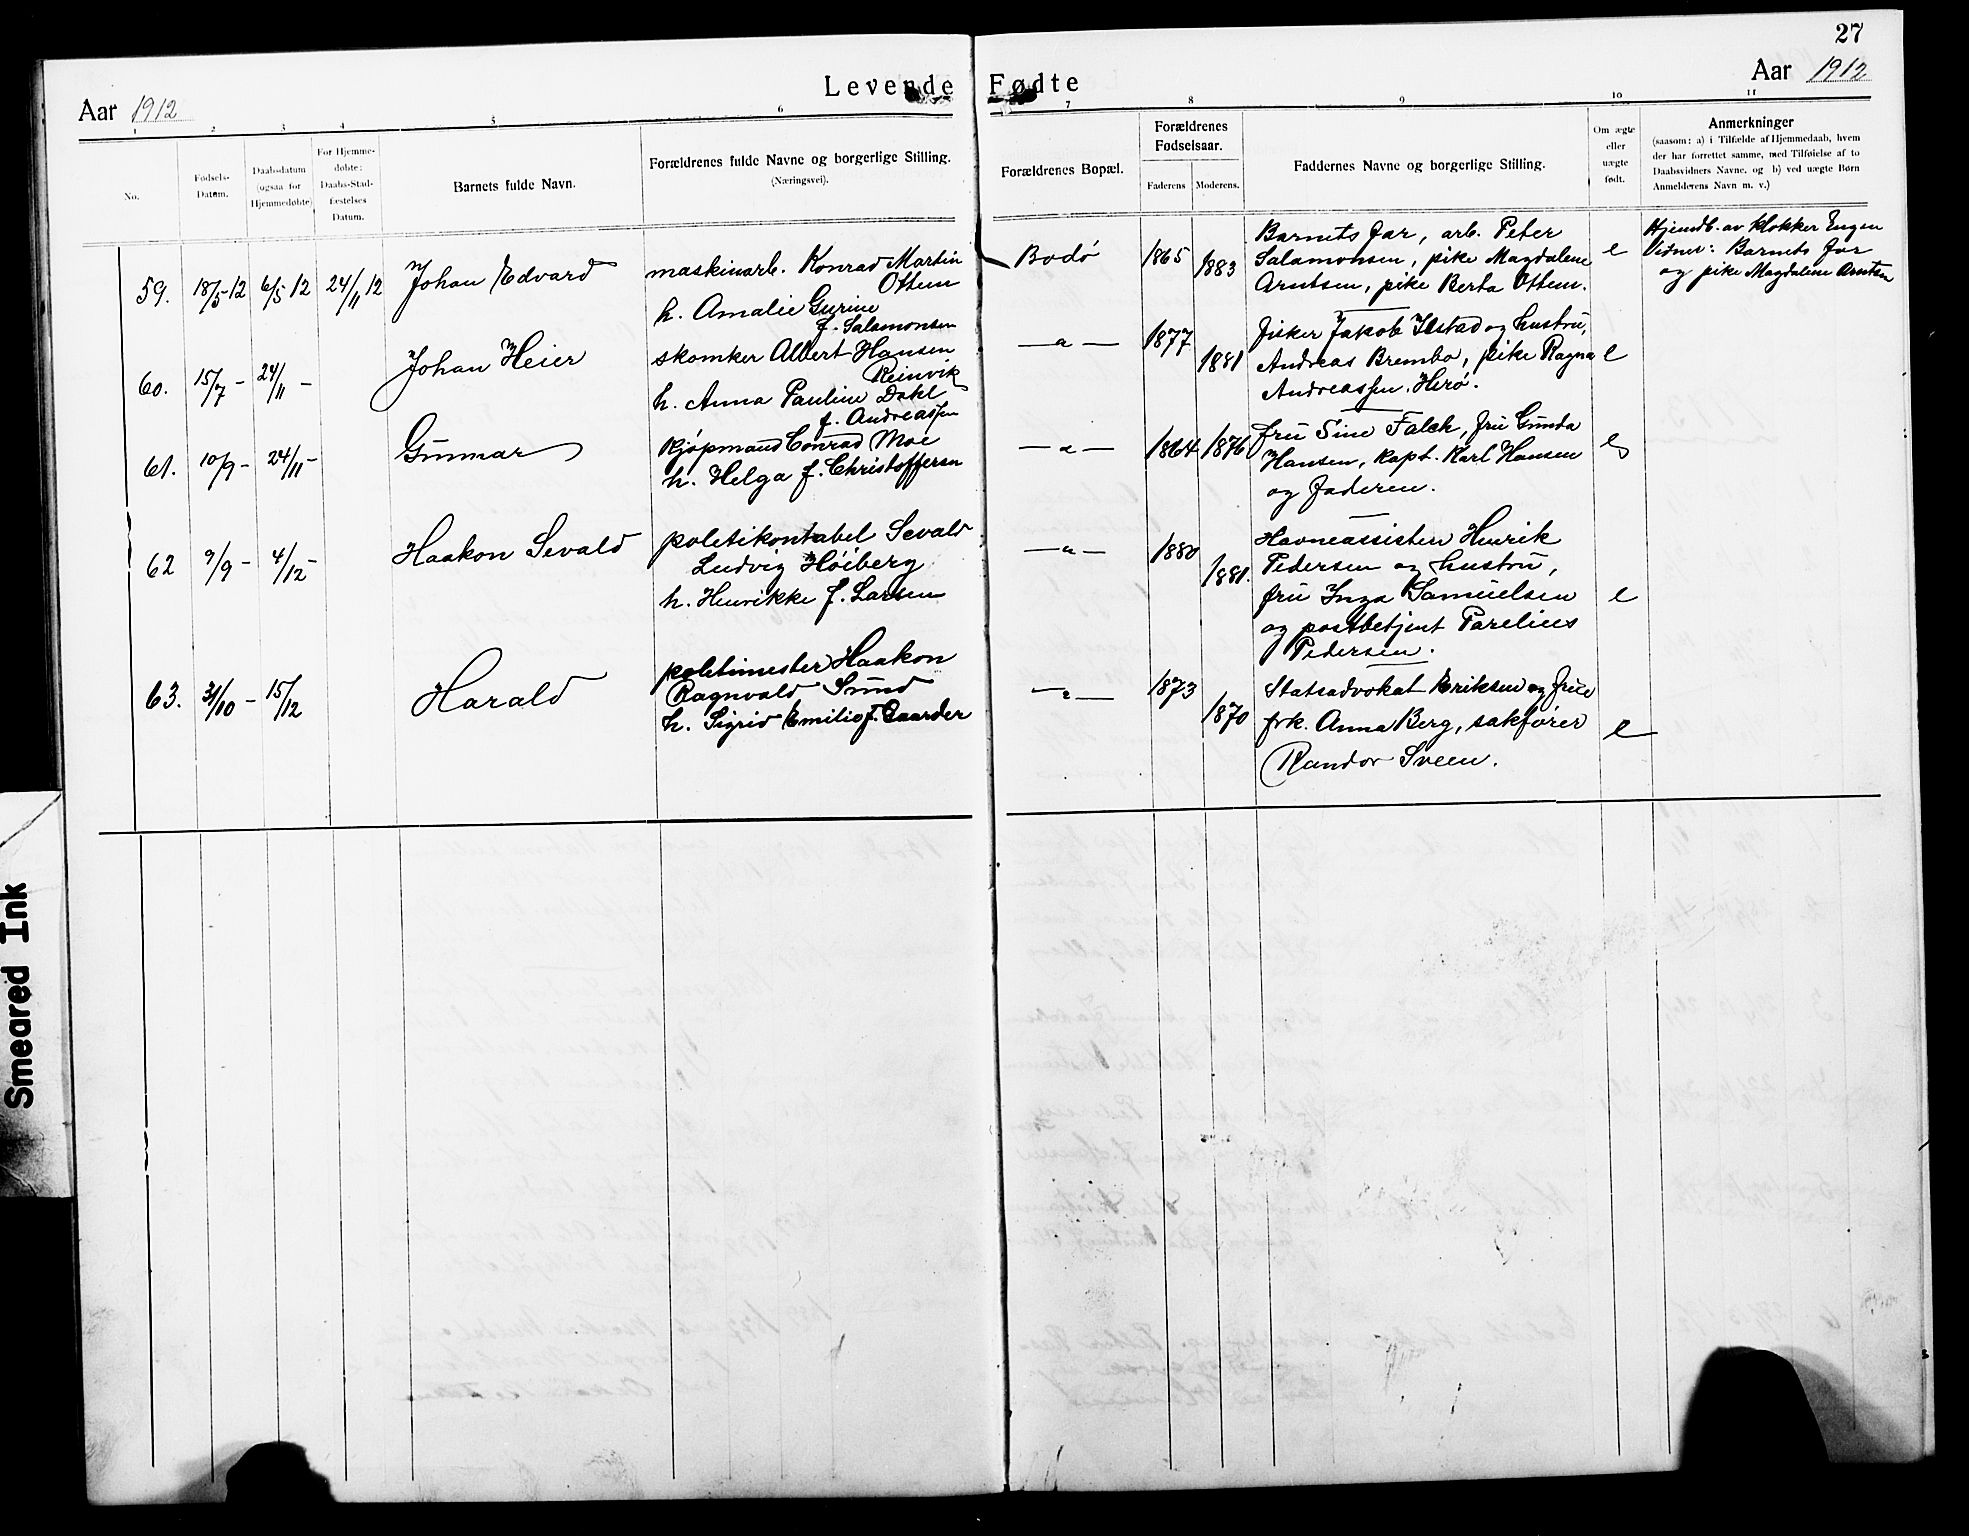 27
Levende Fødte
Aar 1912
Aar 1912
1 2 3 4 5 6 7 8 9 10 11
No.
Fødsels-
Datum.
Daabsdatum
(ogsaa for
Hjemmedøbte)
For Hjemme-
døbte:
Daabs-Stad-
fæstelses
Datum.
Barnets fulde Navn.
Forældrenes fulde Navne og borgerlige Stilling.
(Næringsvei).
Forældrenes Bopæl.
Forældrenes
Fødselsaar.
Faderens Moderens.
Faddernes Navne og borgerlige Stilling.
Om ægte
eller
uægte
født.
Anmerkninger
(saasom: a) i Tilfælde af Hjemmedaab, hvem
der har forrettet samme, med Tilføielse af to
Daabsvidners Navne, og b) ved uægte Børn
Anmelderens Navn m. v.)
59. 18/5-12 6/5 12 24/11 12 Johan Edvard
maskinarb. Konrad Martin
Ottem
h. Amalie Gurine
f. Salamonsen
Bodø 1865 1883
Barnets far, arb. Peter
Salamonsen, pike Magdalene
Arntsen, pike Berta Ottem.
e
Hjemdb. av klokker Engen
Vidner: Barnets far
og pike Magdalene Arntsen
60. 15/7 - 24/11 - Johan Heier
skomker Albert Hansen
Reinvik
h. Anna Pauline Dahl
f. Andreassen
— " — 1877 1881
fisker Jakob Ilstad og hustru,
Andreas Brembo, pike Ragna
Andreassen, Herø.
e
61. 10/9 - 24/11 - Gunnar
Kjøpmand Conrad Moe
h. Helga f. Christoffersen
— " — 1864 1876
fru Sine Falch, fru Gunda
Hansen, kapt. Karl Hansen
og faderen.
e
62 9/9 - 4/12 - Haakon Sevald
politikontabel Sevald
Ludvig Høiberg
h. Henrikke f. Larsen
— " — 1880 1881.
Havneassisten Henrik
Pedersen og hustru,
fru Inga Samuelsen
og postbetjent Parelius
Pedersen.
e
63. 31/10 - 15/12 Harald
politimester Haakon
Ragnvald Sund
h. Sigrid Emilie f. Gaarder
— " — 1873 1870
Statsadvokat Eriksen og frue
frk. Anna Berg, sakfører
Randor Sveen.
e
Smeared Ink